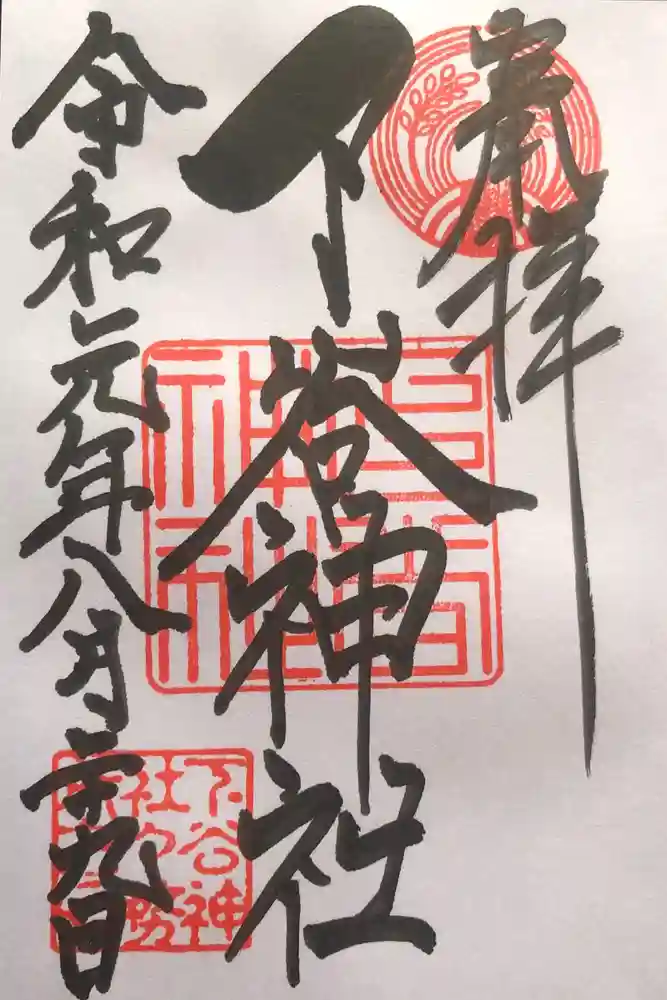 奉拝
下谷神社
令和元年八月二十九日
下谷神
社